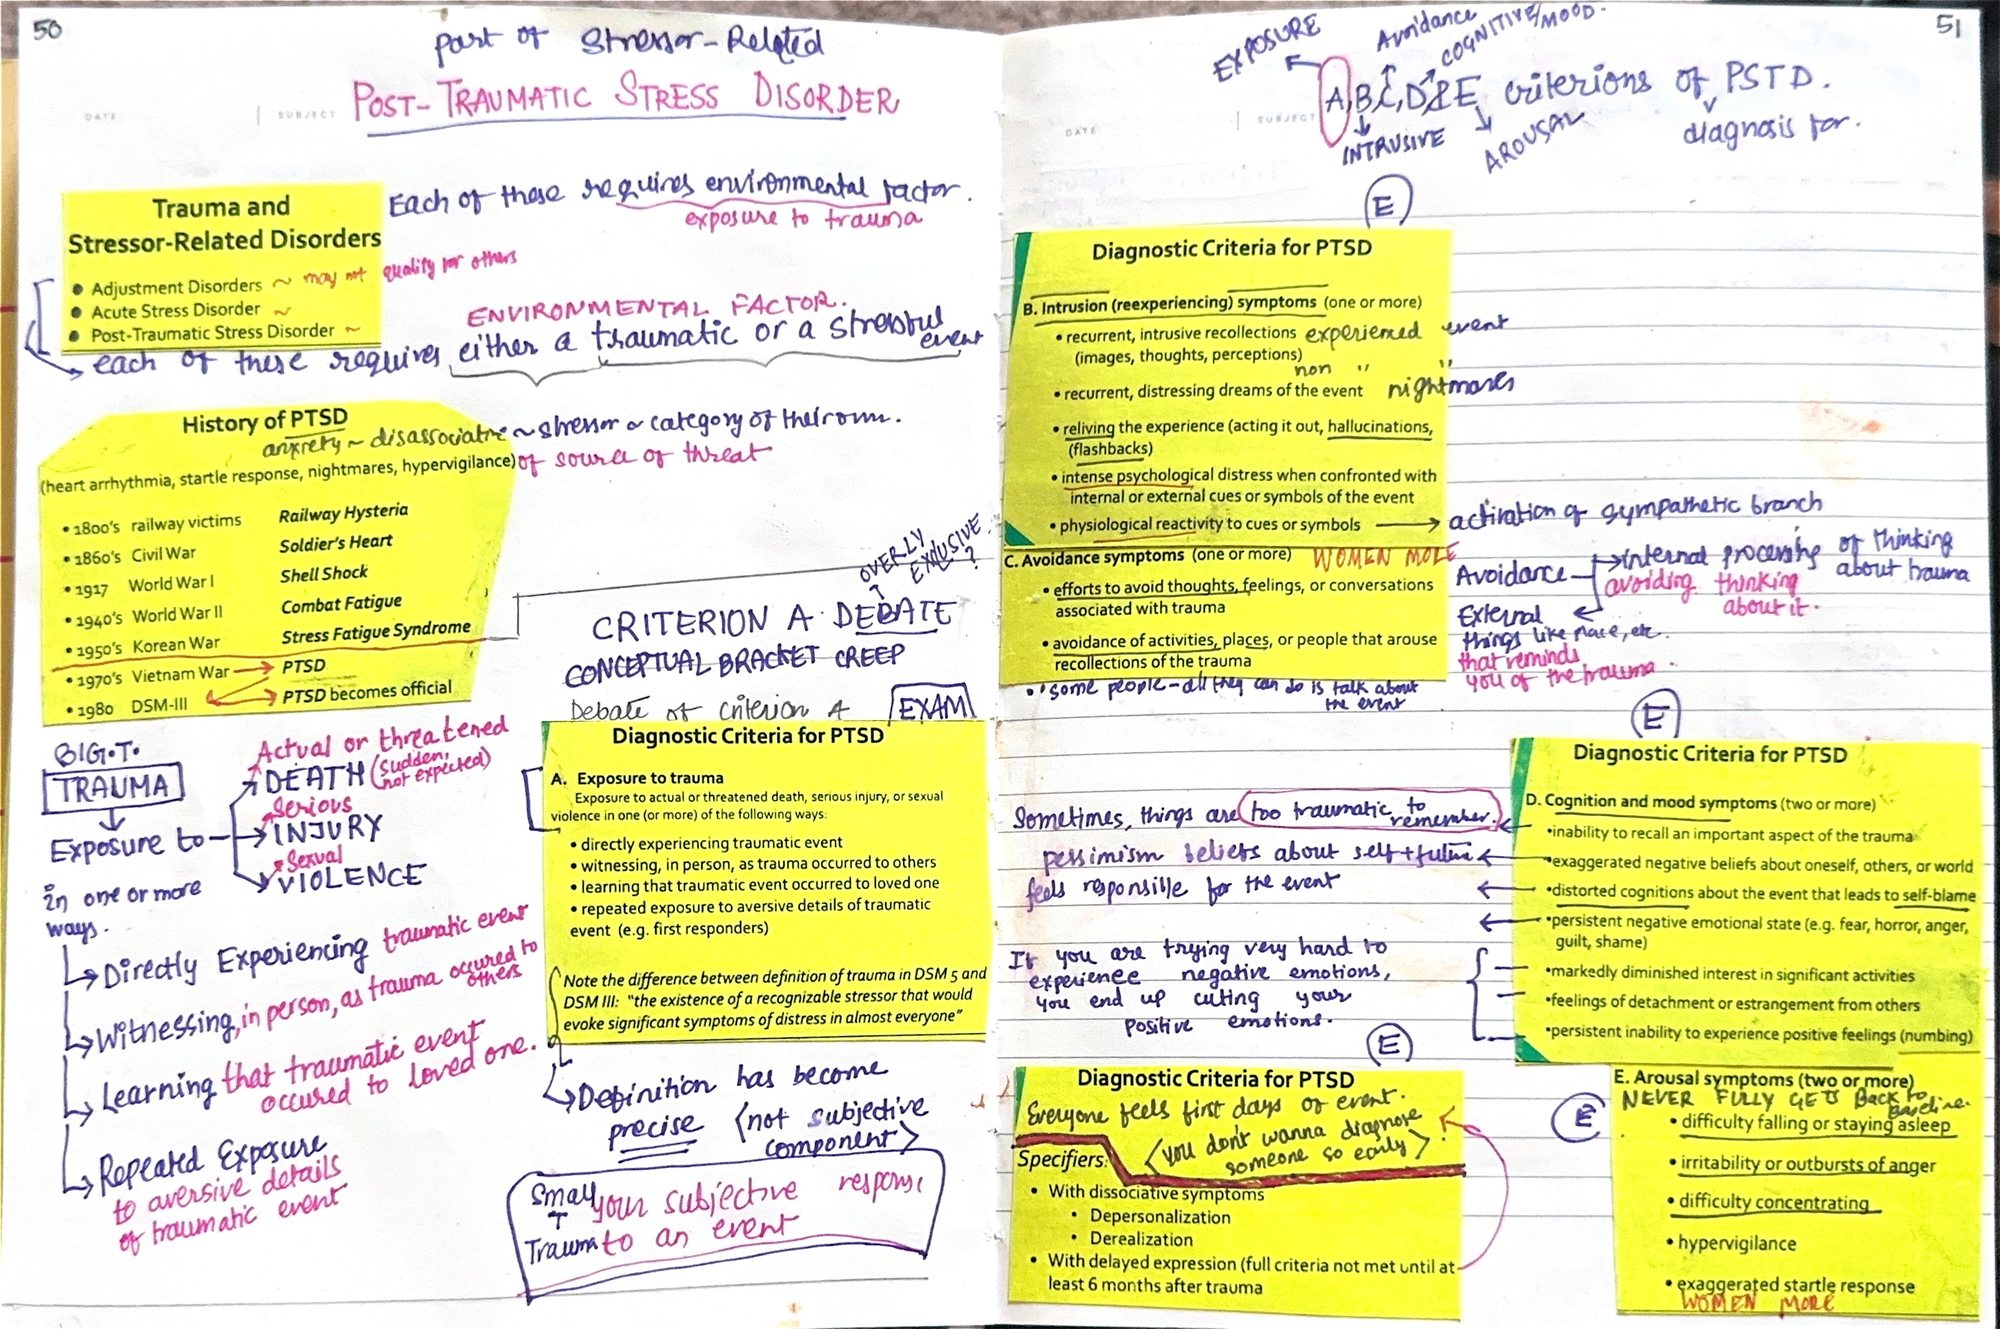 50
part of Stressor-Related
DATE
SUBJECT
POST-TRAUMATIC STRESS DISORDER
Trauma and
Stressor-Related Disorders
Each of these requires environmental factor.
exposure to trauma
• Adjustment Disorders ~ may not qualify for others
• Acute Stress Disorder ~
• Post-Traumatic Stress Disorder ~
ENVIRONMENTAL FACTOR.
each of these requires either a traumatic or a stressful
event
History of PTSD
anxiety ~ disassociative ~ stressor ~ category of their own.
of source of threat
(heart arrhythmia, startle response, nightmares, hypervigilance)
• 1800's railway victims Railway Hysteria
• 1860's Civil War Soldier's Heart
• 1917 World War I Shell Shock
• 1940's World War II Combat Fatigue
• 1950's Korean War Stress Fatigue Syndrome
• 1970's Vietnam War → PTSD
• 1980 DSM-III PTSD becomes official
OVERLY
EXCLUSIVE
?
CRITERION A DEBATE
CONCEPTUAL BRACKET CREEP
Debate of criterion A
EXAM
BIG.T.
TRAUMA
Exposure to
Actual or threatened
DEATH (sudden,
not expected)
Serious
INJURY
Sexual
VIOLENCE
in one or more
ways.
Directly Experiencing traumatic event
Witnessing, in person, as trauma occured to
others
Learning that traumatic event
occured to loved one.
Repeated Exposure
to aversive details
of traumatic event
Diagnostic Criteria for PTSD
A. Exposure to trauma
Exposure to actual or threatened death, serious injury, or sexual
violence in one (or more) of the following ways:
• directly experiencing traumatic event
• witnessing, in person, as trauma occurred to others
• learning that traumatic event occurred to loved one
• repeated exposure to aversive details of traumatic
event (e.g. first responders)
Note the difference between definition of trauma in DSM 5 and
DSM III: "the existence of a recognizable stressor that would
evoke significant symptoms of distress in almost everyone"
Definition has become
precise (not subjective
component)
Small your subjective response
T
Trauma to an event
51
EXPOSURE
Avoidance
COGNITIVE/MOOD.
A,B,C,D&E criterions of PSTD.
diagnosis for.
INTRUSIVE
AROUSAL
DATE:
SUBJECT
E
Diagnostic Criteria for PTSD
B. Intrusion (reexperiencing) symptoms (one or more)
• recurrent, intrusive recollections experienced event
(images, thoughts, perceptions)
non " "
• recurrent, distressing dreams of the event nightmares
• reliving the experience (acting it out, hallucinations,
(flashbacks)
• intense psychological distress when confronted with
internal or external cues or symbols of the event
• physiological reactivity to cues or symbols → activation of sympathetic branch
C. Avoidance symptoms (one or more) WOMEN MORE
• efforts to avoid thoughts, feelings, or conversations
associated with trauma
• avoidance of activities, places, or people that arouse
recollections of the trauma
• some people - all they can do is talk about
the event
Avoidance
internal processing of thinking
about trauma
avoiding thinking
about it.
External
things like place, etc.
that reminds
you of the trauma.
E
Diagnostic Criteria for PTSD
D. Cognition and mood symptoms (two or more)
•inability to recall an important aspect of the trauma
•exaggerated negative beliefs about oneself, others, or world
•distorted cognitions about the event that leads to self-blame
•persistent negative emotional state (e.g. fear, horror, anger,
guilt, shame)
•markedly diminished interest in significant activities
•feelings of detachment or estrangement from others
•persistent inability to experience positive feelings (numbing)
Sometimes, things are too traumatic to
remember.
pessimism beliefs about self + future
feels responsible for the event
If you are trying very hard to
experience negative emotions,
you end up cutting your
positive emotions.
E
Diagnostic Criteria for PTSD
Everyone feels first days of event.
(you don't wanna diagnose
someone so early)
Specifiers:
• With dissociative symptoms
• Depersonalization
• Derealization
• With delayed expression (full criteria not met until at
least 6 months after trauma
E
E. Arousal symptoms (two or more)
NEVER FULLY GETS Back to
Baseline.
• difficulty falling or staying asleep
• irritability or outbursts of anger
• difficulty concentrating
• hypervigilance
• exaggerated startle response
WOMEN MORE